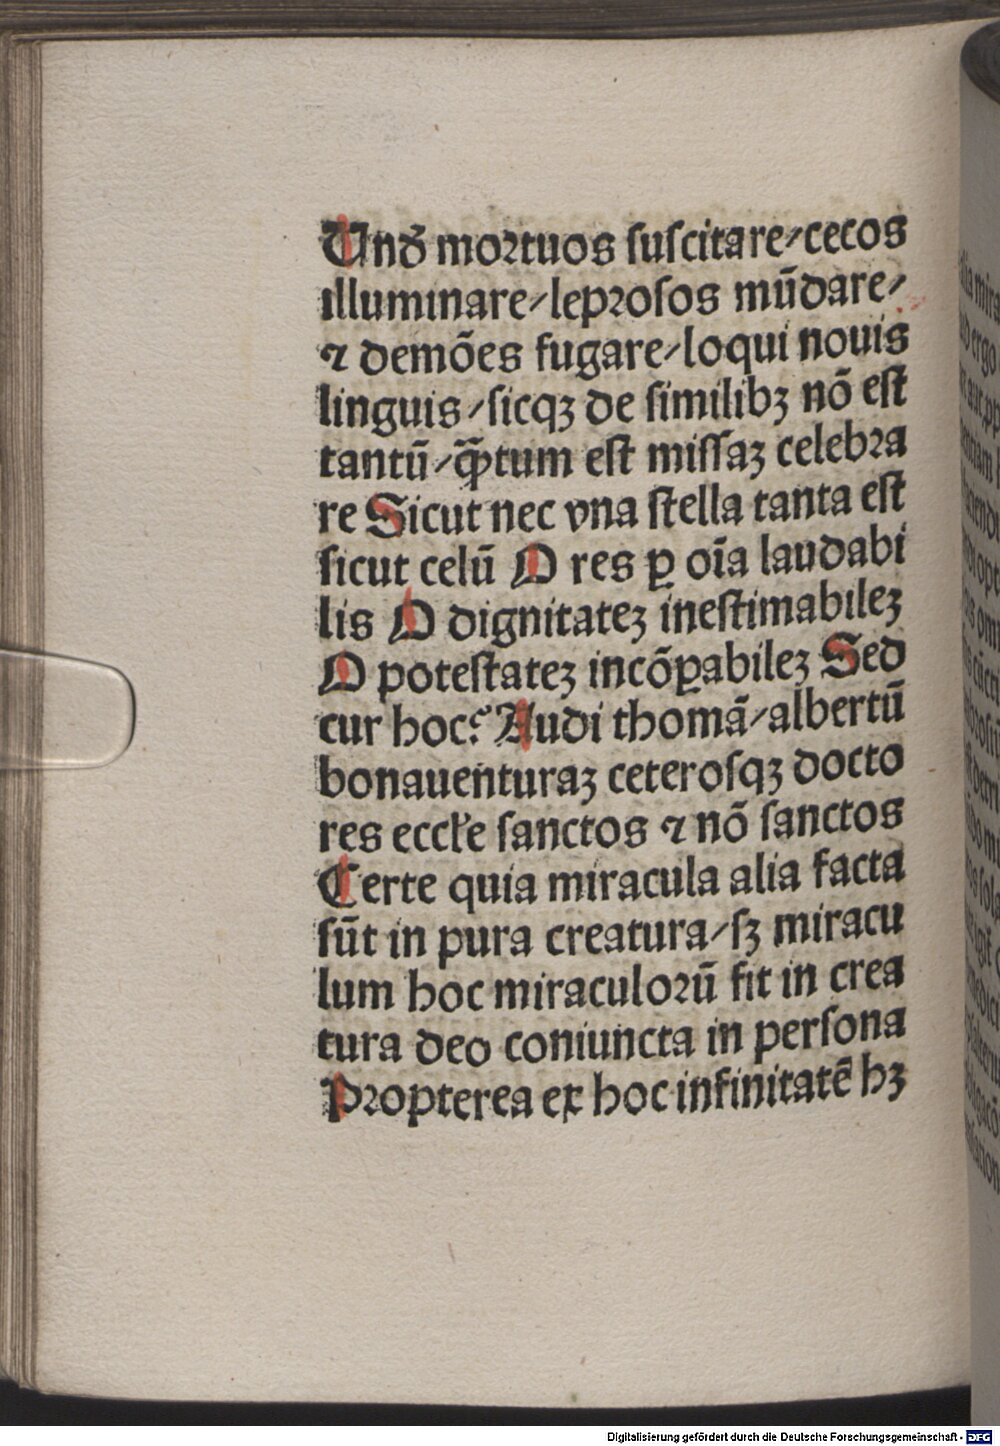 Unď mortuos suscitare/cecos
illuminare/leprosos mūdare/
⁊ demōes fugare/loqui nouis
linguis/sicqꝫ de similibꝫ nō est
tantū/qᷓꝫtum est missaꝫ celebra
re Sicut nec vna stella tanta est
sicut celū O res ꝑ oīa laudabi
lis O dignitateꝫ inestimabileꝫ
O potestateꝫ incōꝑabileꝫ Sed
cur hoc? Audi thomā/albertū
bonauenturaꝫ ceterosqꝫ docto
res eccłe sanctos ⁊ nō sanctos
Certe quia miracula alia facta
sūt in pura creatura/sꝫ miracu
lum hoc miraculorū fit in crea
tura deo coniuncta in persona
Propterea ex hoc infinitatē hꝫ
Digitalisierung gefördert durch die Deutsche Forschungsgemeinschaft - DFG